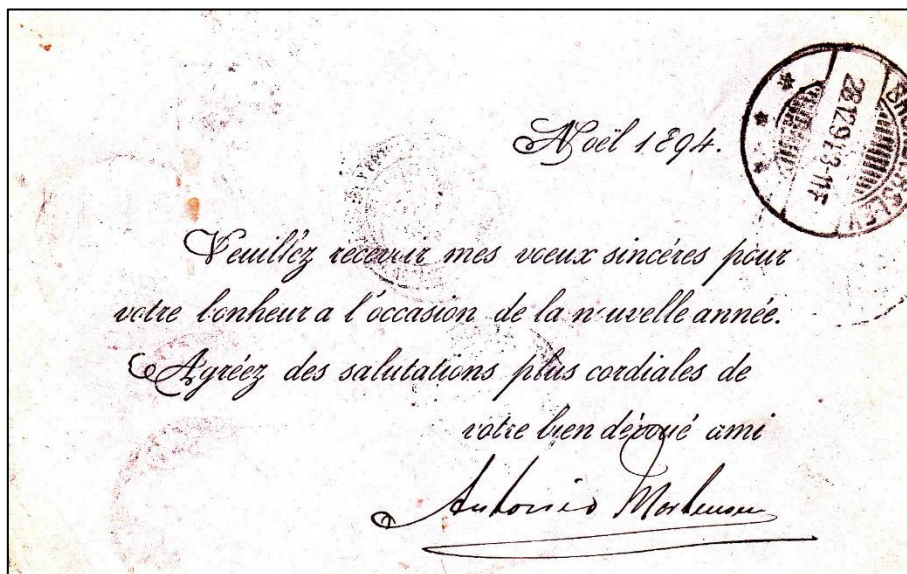 Noël 1894.
28.12.94.8-11F
Veuillez recevoir mes voeux sincéres pour
votre bonheur a l'occasion de la nouvelle année.
Agréez des salutations plus cordiales de
votre bien dévoué ami